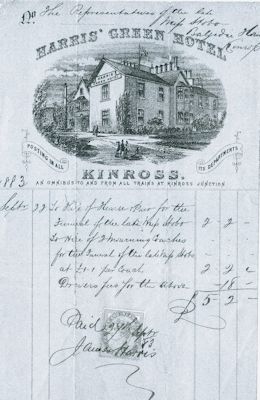 No.
The Representatives of the late
Miss Hobs
Kinross
HARRIS' GREEN HOTEL
HARRIS'S
POSTING IN ALL
ITS DEPARTMENTS
KINROSS.
AN OMNIBUS TO AND FROM ALL TRAINS AT KINROSS JUNCTION
1883
Sept. 22 To Hire of Hearse & Pair for the
Funeral of the late Miss Hobs 2 2 -
To Hire of 2 Mourning Coaches
for the Funeral of the late Miss Hobs
at £1.1 per Coach 2 2 -
Drivers fees for the above - 18 -
£ 5 2 -
Paid
James Harris